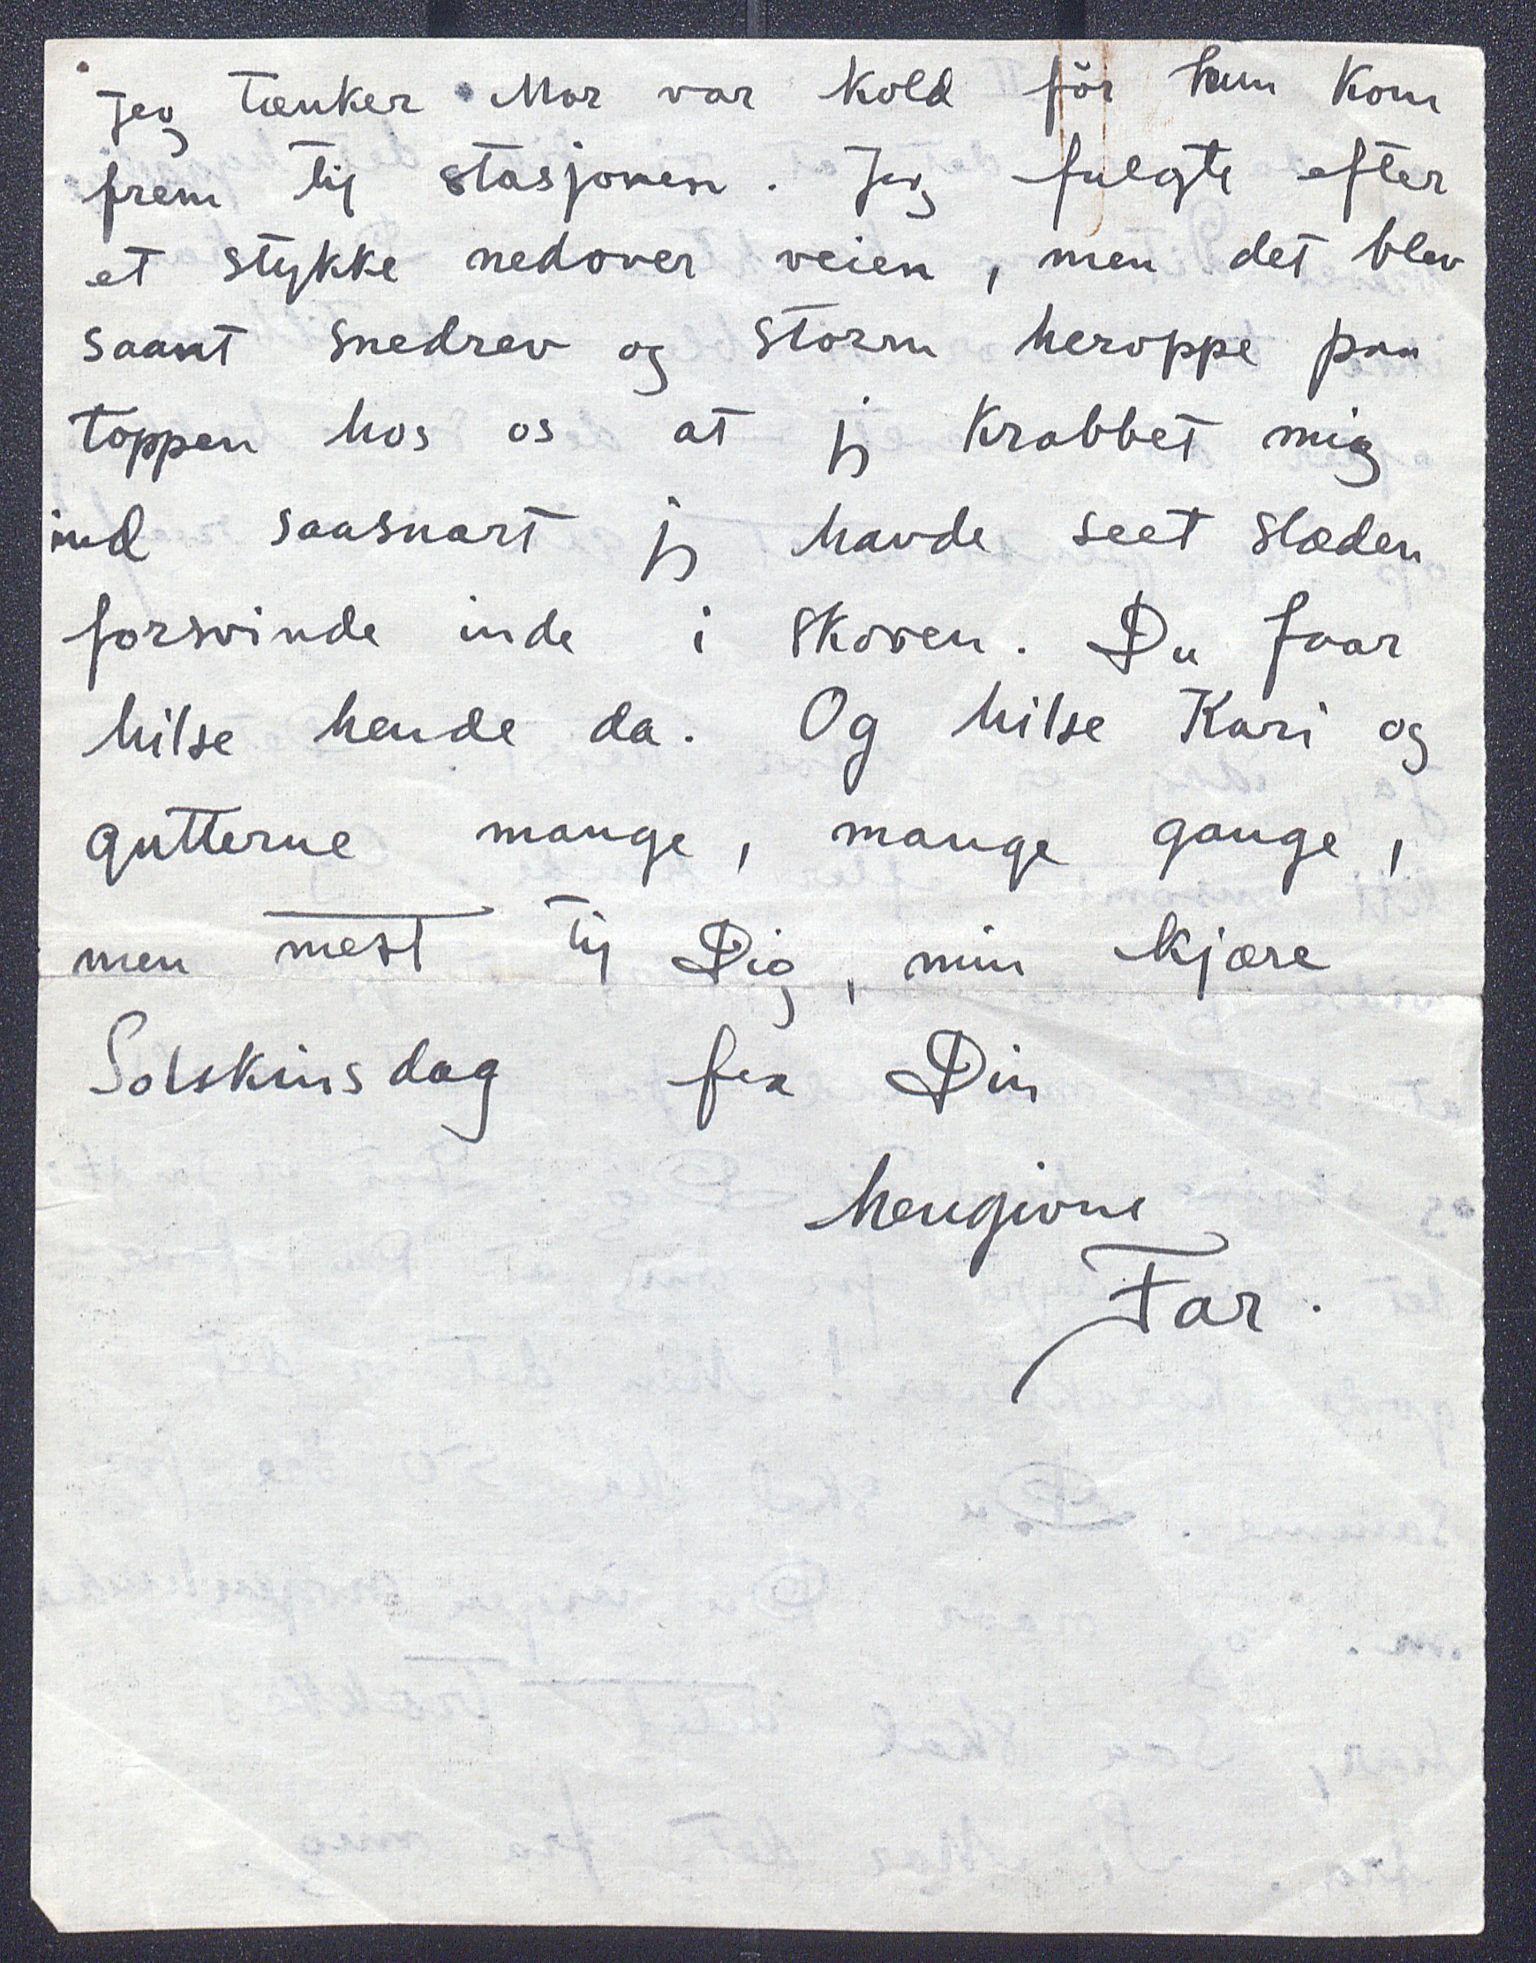 Jeg tænker Mor var kold för hun kom
frem til stasjonen. Jeg fulgte efter
et stykke nedover veien, men det blev
saant snedrev og storm heroppe paa
toppen hos os at jeg krabbet mig
ind saasnart jeg havde seet slæden
forsvinde inde i skoven. Du faar
hilse hende da. Og hilse Kari og
gutterne mange, mange gange,
men mest til Dig, min kjære
Solskinsdag fra Din
hengivne
Far.